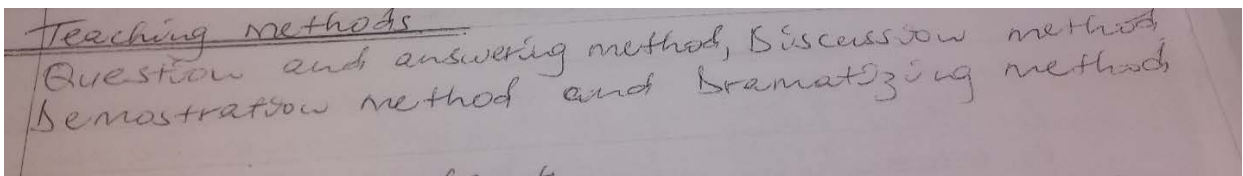 Teaching methods.
Question and answering method, Discussion method
Demostration method and Dramatizing method